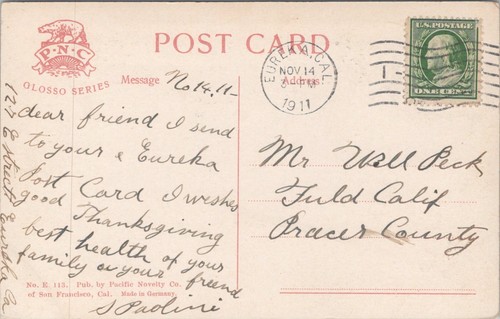 P·N·C
OLOSSO SERIES
POST CARD
Message
Address.
EUREKA, CAL.
NOV 14
1911
U.S. POSTAGE
ONE CENT
No 14. 11-
dear friend I send
to your & Eureka
Post Card I wishes
good Thanksgiving
best health of your
family or your friend
S Paolini
127 E street Eureka Ca
Mr Will Peck
Calif
Pracer County
No. E. 115. Pub. by Pacific Novelty Co.
of San Francisco, Cal. Made in Germany.